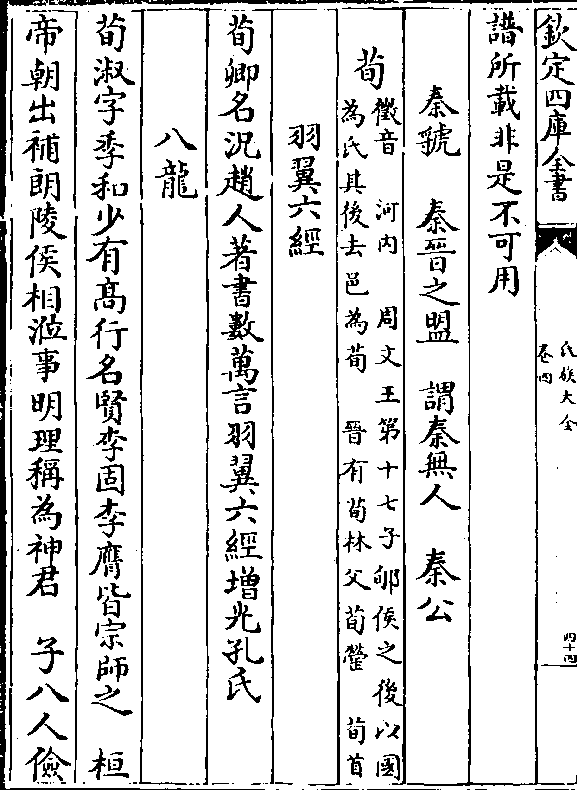 欽定四庫全書
氏族大全
卷四
四十四
譜所載非是不可用
秦號 秦晉之盟 謂秦無人 秦公
荀
徵音 河内 周文王第十七子郇侯之後以國
為氏其後去邑為荀 晉有荀林父荀罃 荀首
羽翼六經
荀卿名况趙人著書數萬言羽翼六經增光孔氏
八龍
荀淑字季和少有髙行名賢李固李膺皆宗師之 桓
帝朝出補朗陵侯相涖事明理稱為神君 子八人儉